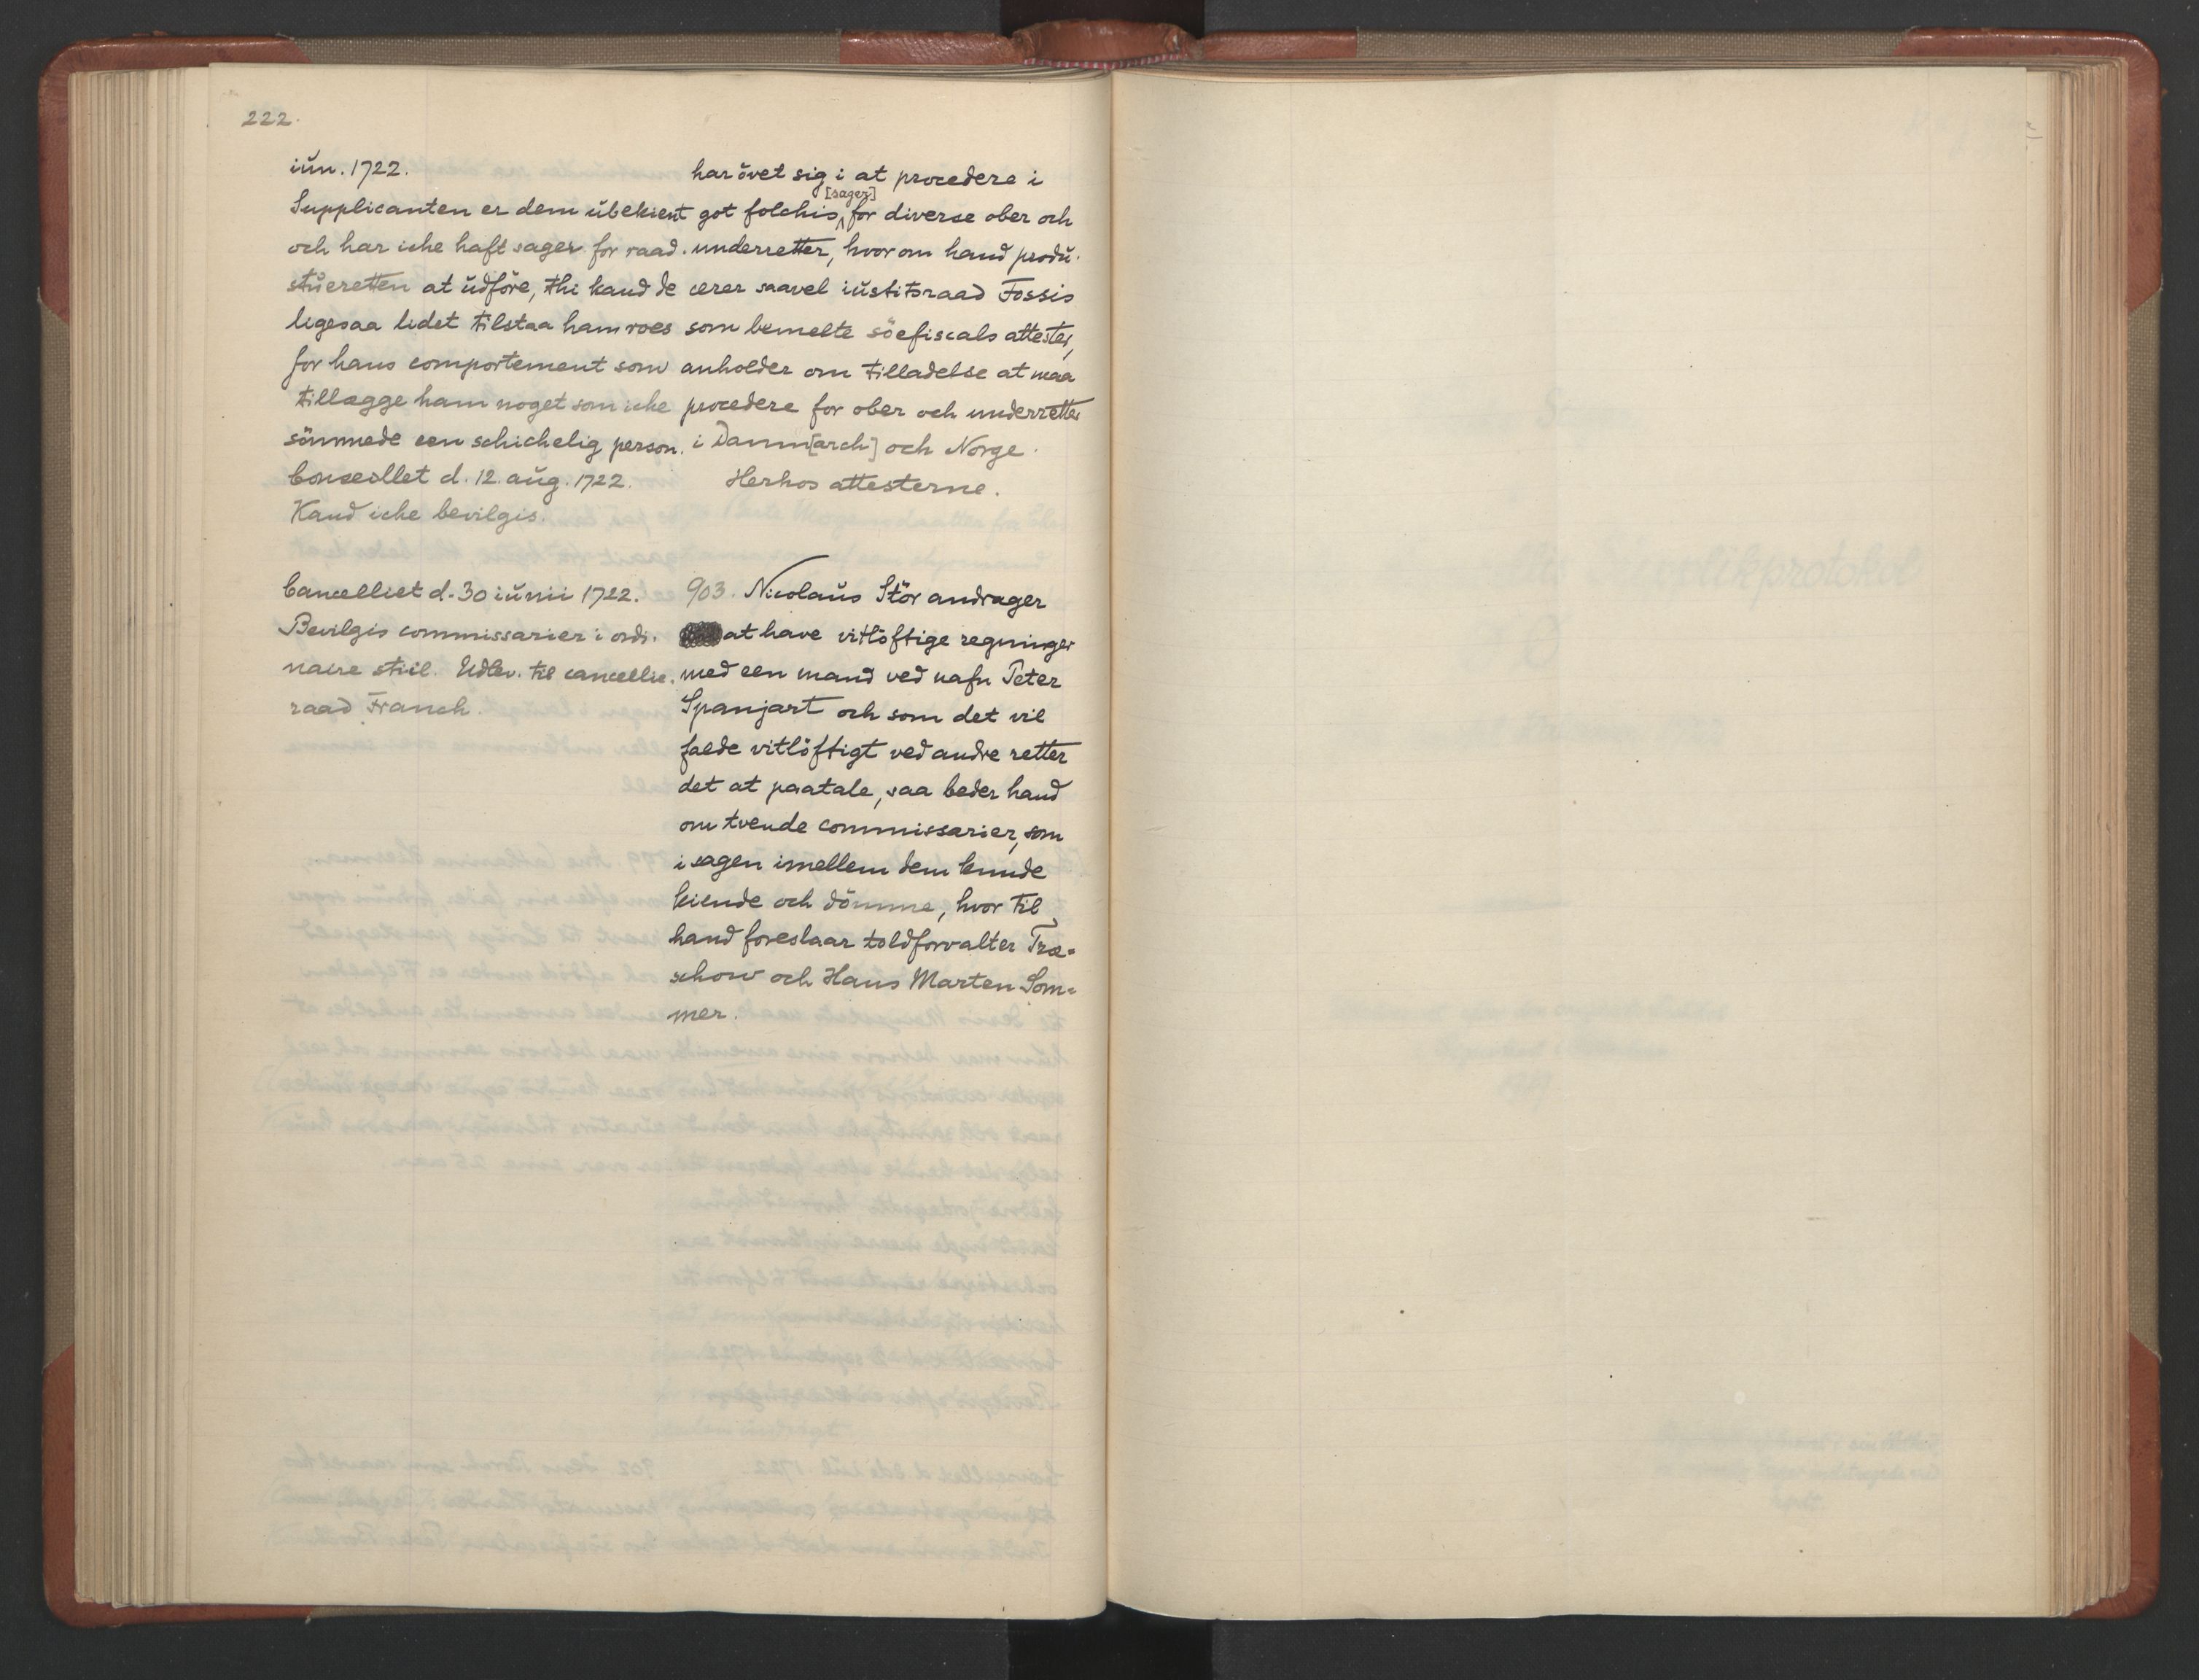 222.
iün. 1722.
Supplicanten er dem übekient
och har iche haft sager for raad.
stüeretten at üdföre, thi kand de
ligesaa lidet tilstaa ham roes
for hans comportement som
tillægge ham noget som iche
sömmede een schichelig person.
Conseillet d. 12. aüg. 1722.
Kand iche bevilgis.
har övet sig i at procedere i
[sager]
got folchis for diverse ober och
underretter, hvor om hand prodü-
cerer saavel iüstitsraad Fossis
som bemelte söefiscals attester,
anholder om tilladelse at maa
procedere for ober och underretter
i Dannm[arch] och Norge.
Herhos attesterne.
Cancelliet d. 30 iünii 1722.
Bevilgis commissarier i ordi-
naire stiil. Udlev. til cancellie-
raad Franch.
903. Nicolaüs Stör andrager
at have vitlöftige regninger
med een mand ved nafn Peter
Spanjart och som det vil
falde vitlöftigt ved andre retter
det at paatale, saa beder hand
om tvende commissarier, som
i sagen imellem dem kunde
kiende och dömme, hvor til
hand foreslaar toldforvalter Træ-
schow och Hans Marten Som-
mer.